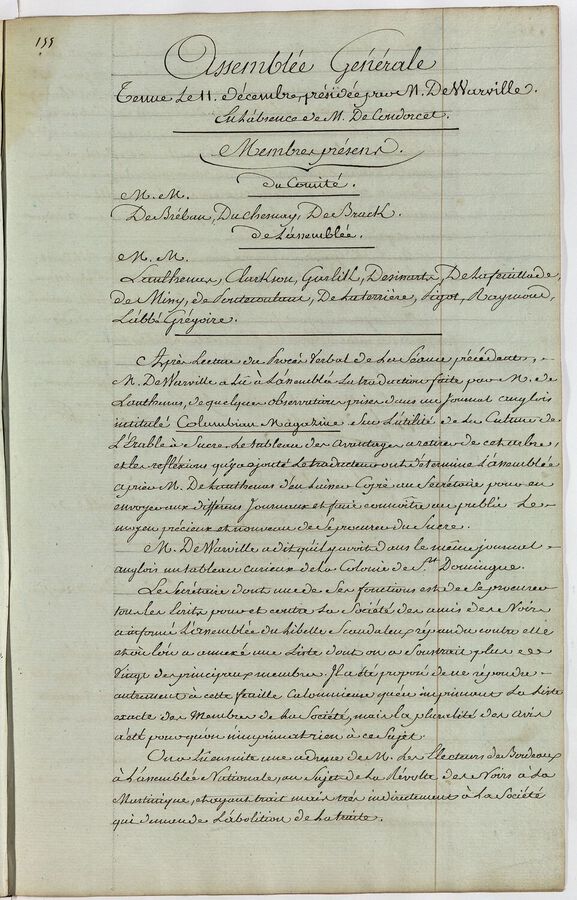 155
Assemblée Générale
Tenue Le 11. décembre, présidée par M. DeWarville.
En L'absence de M. De Condorcet.
Membres présens.
du Comité.
M. M.
De Bréban, Du Chesnay, De Brack.
de L'assemblée.
M. M.
Lanthenas, Clarkson, Desinarts, De La feuillade,
de Missy, de Pontecoulant, De La terrière, Pigot, Raymond,
L'abbé Grégoire.
Après Lecture du Procès Verbal de La Séance précédente,
M. DeWarville a Lu à L'assemblée La traduction faite par M. de
Lanthenas, de quelques observations prises dans un Journal anglois
intitulé Columbian Magazine Sur L'utilité de La Culture de
L'Erable à Sucre. Le tableau des avantages à retirer de cet arbre,
et les réflexions qu'y a ajouté Le traducteur ont déterminé L'assemblée
à prier M. De Lanthenas d'en Laisser Copie au Secrétaire pour en
envoyer aux différens Journaux et faire connoître au public Le
moyen précieux et nouveau de Se procurer du Sucre.
M. DeWarville a dit qu'il y avoit dans le même journal
anglois un tableau curieux de la Colonie de St. Domingue.
Le Secrétaire dont une de Ses fonctions est de Se procurer
tous les Ecrits pour et contre La Société des amis des Noirs
a informé L'assemblée du Libelle Scandaleux répandu contre elle
et où L'on a annexé une Liste dont on a Soustrait plus de
Vingt des principaux membres. Il a été proposé de ne répondre
autrement à cette feuille Calomnieuse qu'en imprimant La Liste
exacte des Membres de La Société, mais la pluralité des avis
a été pour qu'on n'imprimat rien à ce Sujet.
On a Lu ensuite une adresse de M. Les Electeurs de Bordeaux
à L'assemblée Nationale, au Sujet de La Révolte des Noirs à La
Martinique, et ayant trait mais très indirectement à La Société
qui demande L'abolition de La traite.